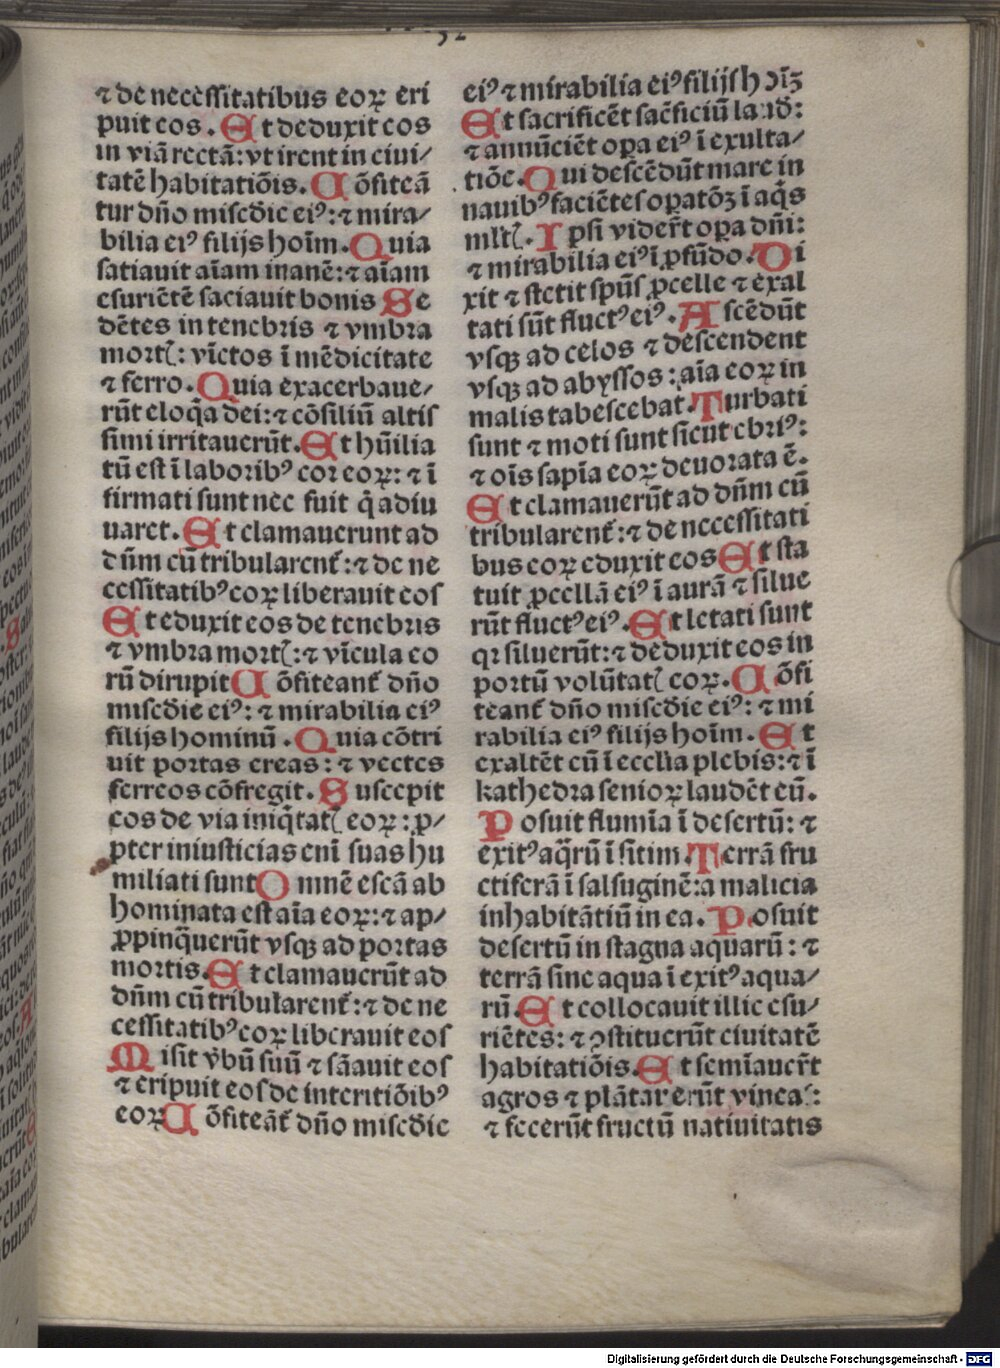 ⁊ de necessitatibus eoꝝ eri
puit eos. Et deduxit eos
in viā rectā: vt irent in ciui/
tatē habitatiōis. Cōfiteā
tur dño miscdie eiꝰ: ⁊ mira/
bilia eiꝰ filijs hoīm. Quia
satiauit aīam inanē: ⁊ aīam
esuriētē saciauit bonis Se
dētes in tenebris ⁊ vmbra
mortꝭ: vīctos ī mēdicitate
⁊ ferro. Quia exacerbaue/
rūt eloq̄a dei: ⁊ cōsiliū altis
simi irritauerūt. Et hūilia
tū est ī laboribꝰ cor eoꝝ: ⁊ ī
firmati sunt nec fuit q̄ adiu
uaret. Et clamauerunt ad
dūm cū tribularenť: ⁊ de ne
cessitatibꝰ eoꝝ liberauit eos
Et eduxit eos de tenebris
⁊ vmbra mortꝭ: ⁊ vīcula eo
rū dirupit Cōfiteanť dño
miscdie eiꝰ: ⁊ mirabilia eiꝰ
filijs hominū. Quia cōtri
uit portas ereas: ⁊ vectes
ferreos cōfregit. Suscepit
eos de via iniq̄tatꝭ eoꝝ: ꝓ/
pter iniusticias enī suas hu
miliati sunt Omnē escā ab
hominata est aīa eoꝝ: ⁊ ap/
ꝓpinq̄uerūt vsqꝫ ad portas
mortis. Et clamauerūt ad
dñm cū tribularenť: ⁊ de ne
cessitatibꝰ eoꝝ liberauit eos
Misit v̄bū suū ⁊ sāauit eos
⁊ eripuit eos de interitiōibꝰ
eoꝝ Cōfiteāť dño miscdie
eiꝰ ⁊ mirabilia eiꝰ filijs
Et sacrificēt sac̄ficiū
⁊ annūciēt oꝑa eiꝰ ī exulta/
tiōe. Qui descēdūt mare in
nauibꝰ faciētes oꝑatōꝫ ī aq̄s
mĺtꝭ. Ipsi vider̄t oꝑa dñi:
⁊ mirabilia eiꝰ ī ꝓfūdo. Di
xit ⁊ stetit spūs ꝓcelle ⁊ exal
tati sūt fluctꝰ eiꝰ. Ascēdūt
vsqꝫ ad celos ⁊ descendent
vsqꝫ ad abyssos: aīa eoꝝ in
malis tabescebat. Turbati
sunt ⁊ moti sunt sicut ebriꝰ:
⁊ oīs sapīa eoꝝ deuorata ē.
Et clamauerūt ad dūm cū
tribularenť: ⁊ de necessitati
bus eoꝝ eduxit eos Et sta
tuit ꝓcellā eiꝰ ī aurā ⁊ silue
rūt fluctꝰ eiꝰ. Et letati sunt
qꝛ siluerūt: ⁊ deduxit eos in
portū volūtatꝭ eoꝝ. Cōfi
teanť dño miscdie eiꝰ: ⁊ mi
rabilia eiꝰ filijs hoīm. Et
exaltēt eū ī ecclīa plebis: ⁊ ī
kathedra senioꝝ laudēt eū.
Posuit flumīa ī desertū: ⁊
exitꝰ aq̄rū ī sitim. Terrā fru
ctiferā ī salsuginē: a malicia
inhabitātiū in ea. Posuit
desertū in stagna aquarū: ⁊
terrā sine aqua ī exitꝰ aqua/
rū. Et collocauit illic esu/
riētes: ⁊ ꝯstituerūt ciuitatē
habitatiōis. Et semīauer̄t
agros ⁊ plātauerūt vineas:
⁊ fecerūt fructū natiuitatis
Digitalisierung gefördert durch die Deutsche Forschungsgemeinschaft - DFG